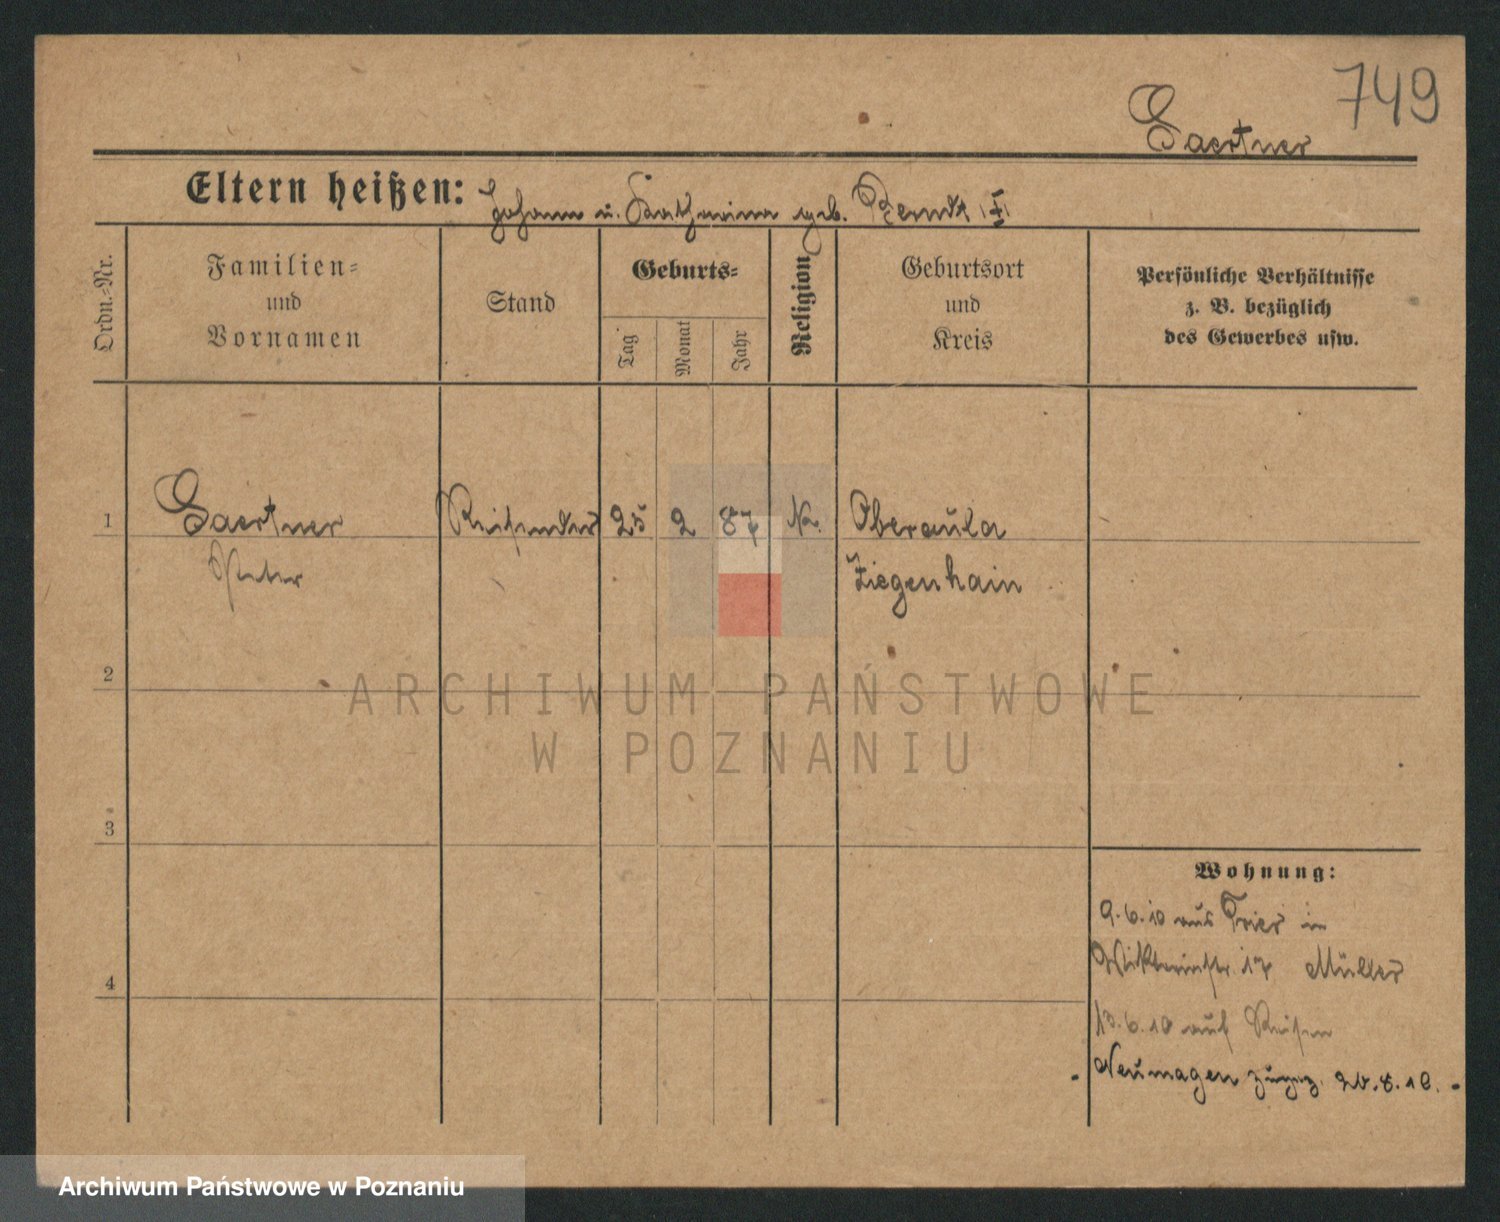 749
Gaertner
Eltern heißen: Johann u. Katharina geb.
Ordn.-Nr.
Familien-
und
Vornamen
Stand
Geburts-
Tag
Monat
Jahr
Religion
Geburtsort
und
Kreis
Persönliche Verhältnisse
z. B. bezüglich
des Gewerbes usw.
1 Gaertner Reisender 25 2 87 Oberaula
Peter Ziegenhain
2
ARCHIWUM PAŃSTWOWE
W POZNANIU
3
Wohnung:
9.6.10 aus Trier in
17 Müller
4
13.6.10 auf Reisen
Neumagen zugez. 26.8.10.
Archiwum Państwowe w Poznaniu